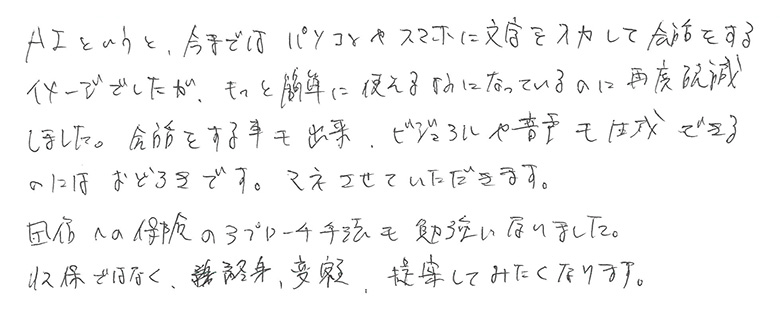 AIというと、今まではパソコンやスマホに文字を入力して会話をする
イメージでしたが、もっと簡単に使えるようになっているのに再度認識
しました。会話をする事も出来、ビジュアルや音声も生成できる
のにはおどろきです。マネさせていただきます。
団信への保険のアプローチ手法も勉強になりました。
収保ではなく、終身、変額、提案してみたくなります。